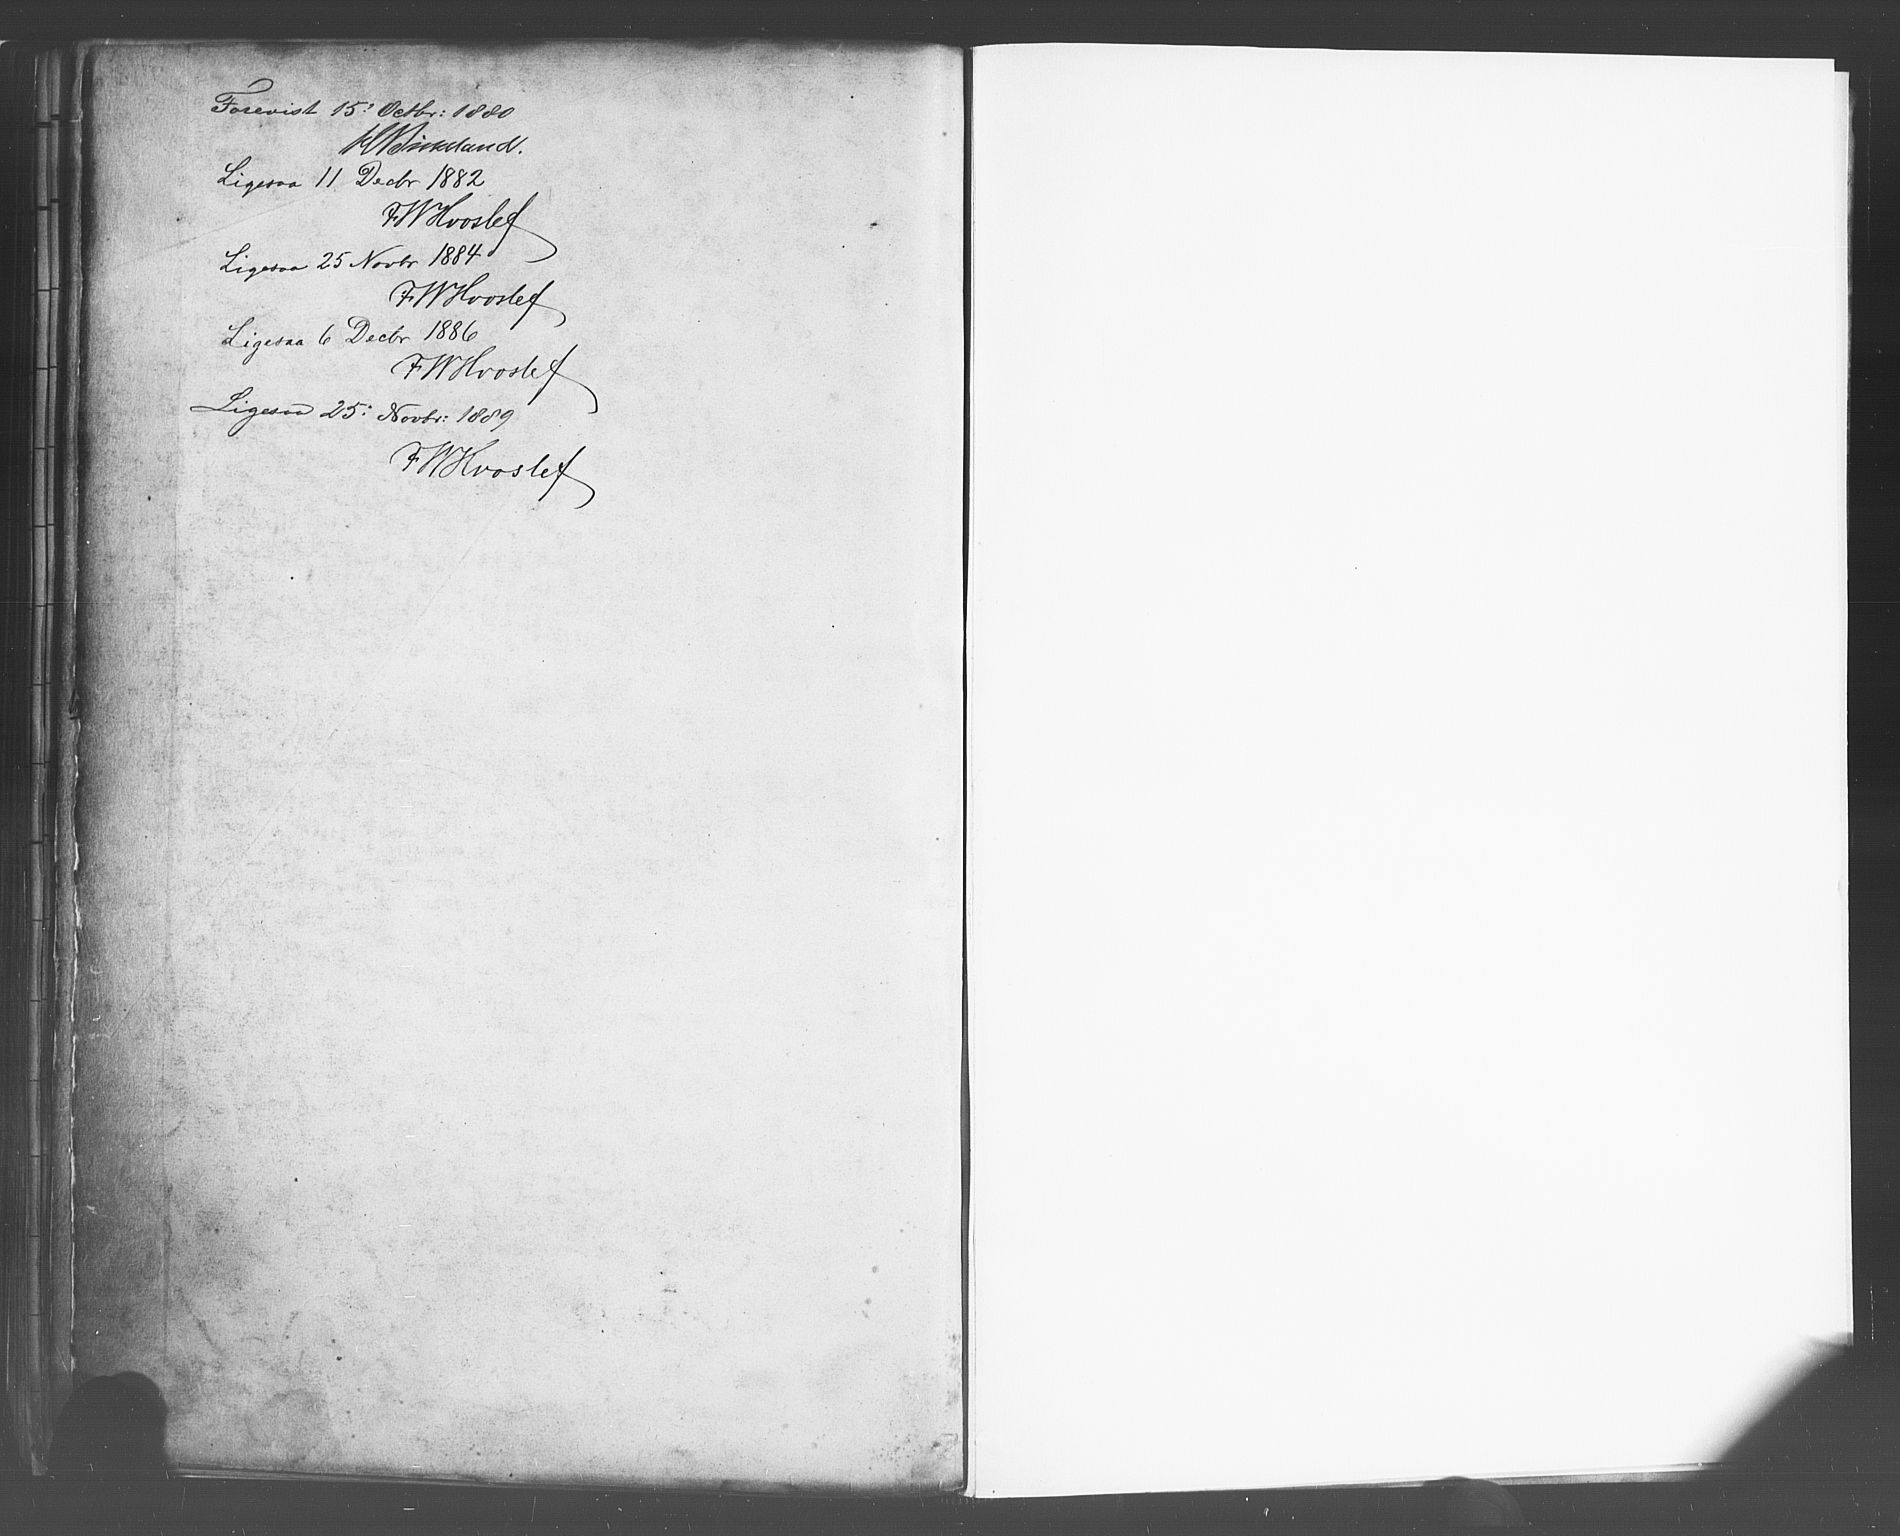 Forevist 15: Octbr: 1880
Birkeland.
Ligesaa 11 Decbr 1882
FWHvoslef
Ligesaa 25 Novbr 1884
FWHvoslef
Ligesaa 6 Decbr 1886
FWHvoslef
Ligesaa 25: Novbr: 1889
FWHvoslef